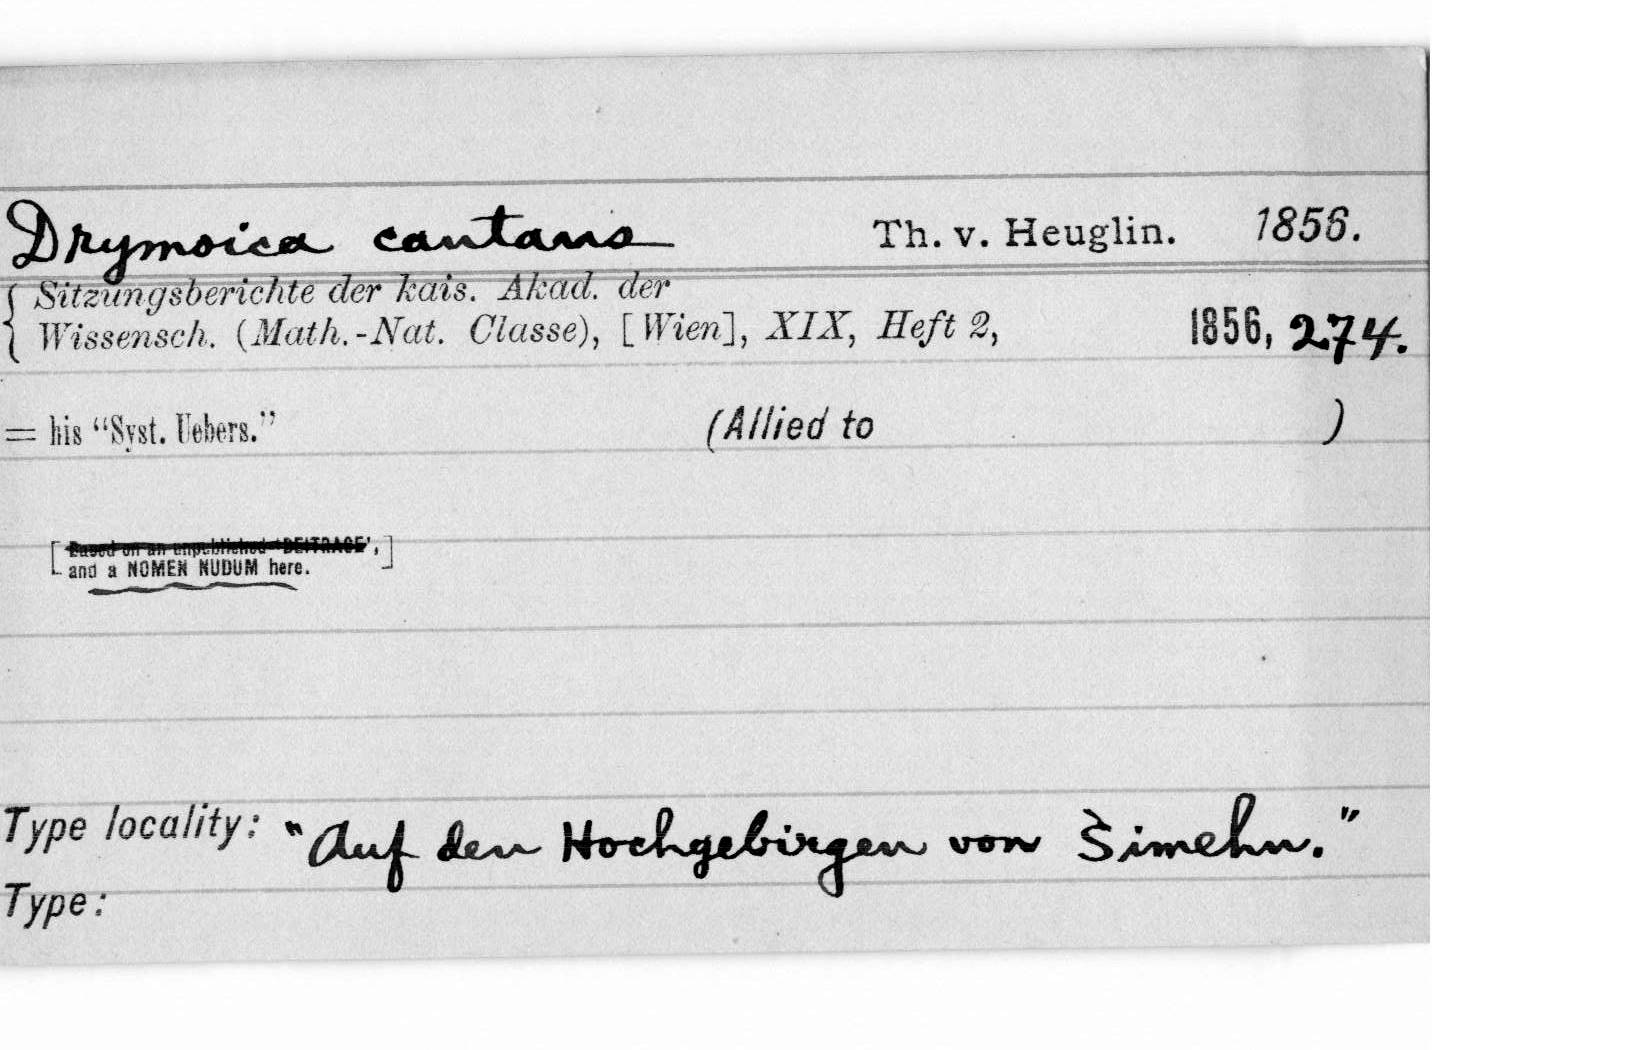 Drymoica cantans Th. v. Heuglin. 1856.
Sitzungsberichte der kais. Akad. der
Wissensch. (Math.-Nat. Classe), [Wien], XIX, Heft 2, 1856, 274.
= his “Syst. Uebers.” (Allied to )
[Based on an unpublished 'BEITRAGE',
and a NOMEN NUDUM here.]
Type locality: "Auf den Hochgebirgen von Simehn."
Type: